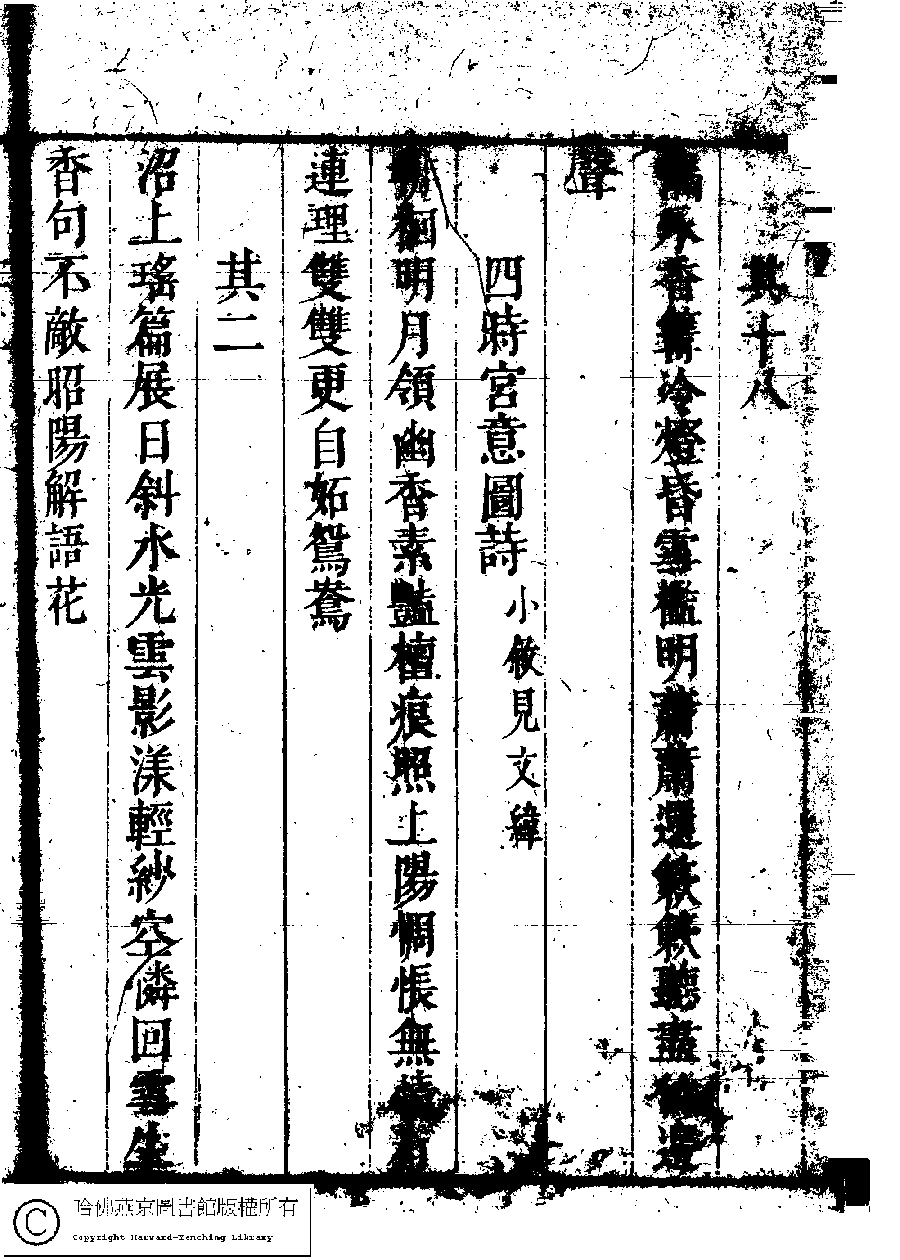 其十八
香篝冷燈昏雪檻明蕭蕭還簌簌聽盡
聲
四時宮意圖詩 小敘見文緯
徊明月領幽香素豔檀痕照上陽惆悵無
連理雙雙更自妬鴛鴦
其二
沼上瑤篇展日斜水光雲影漾輕紗空憐回雪生
香句不敵昭陽解語花
哈佛燕京圖書館版權所有
Copyright Harvard-Yenching Library